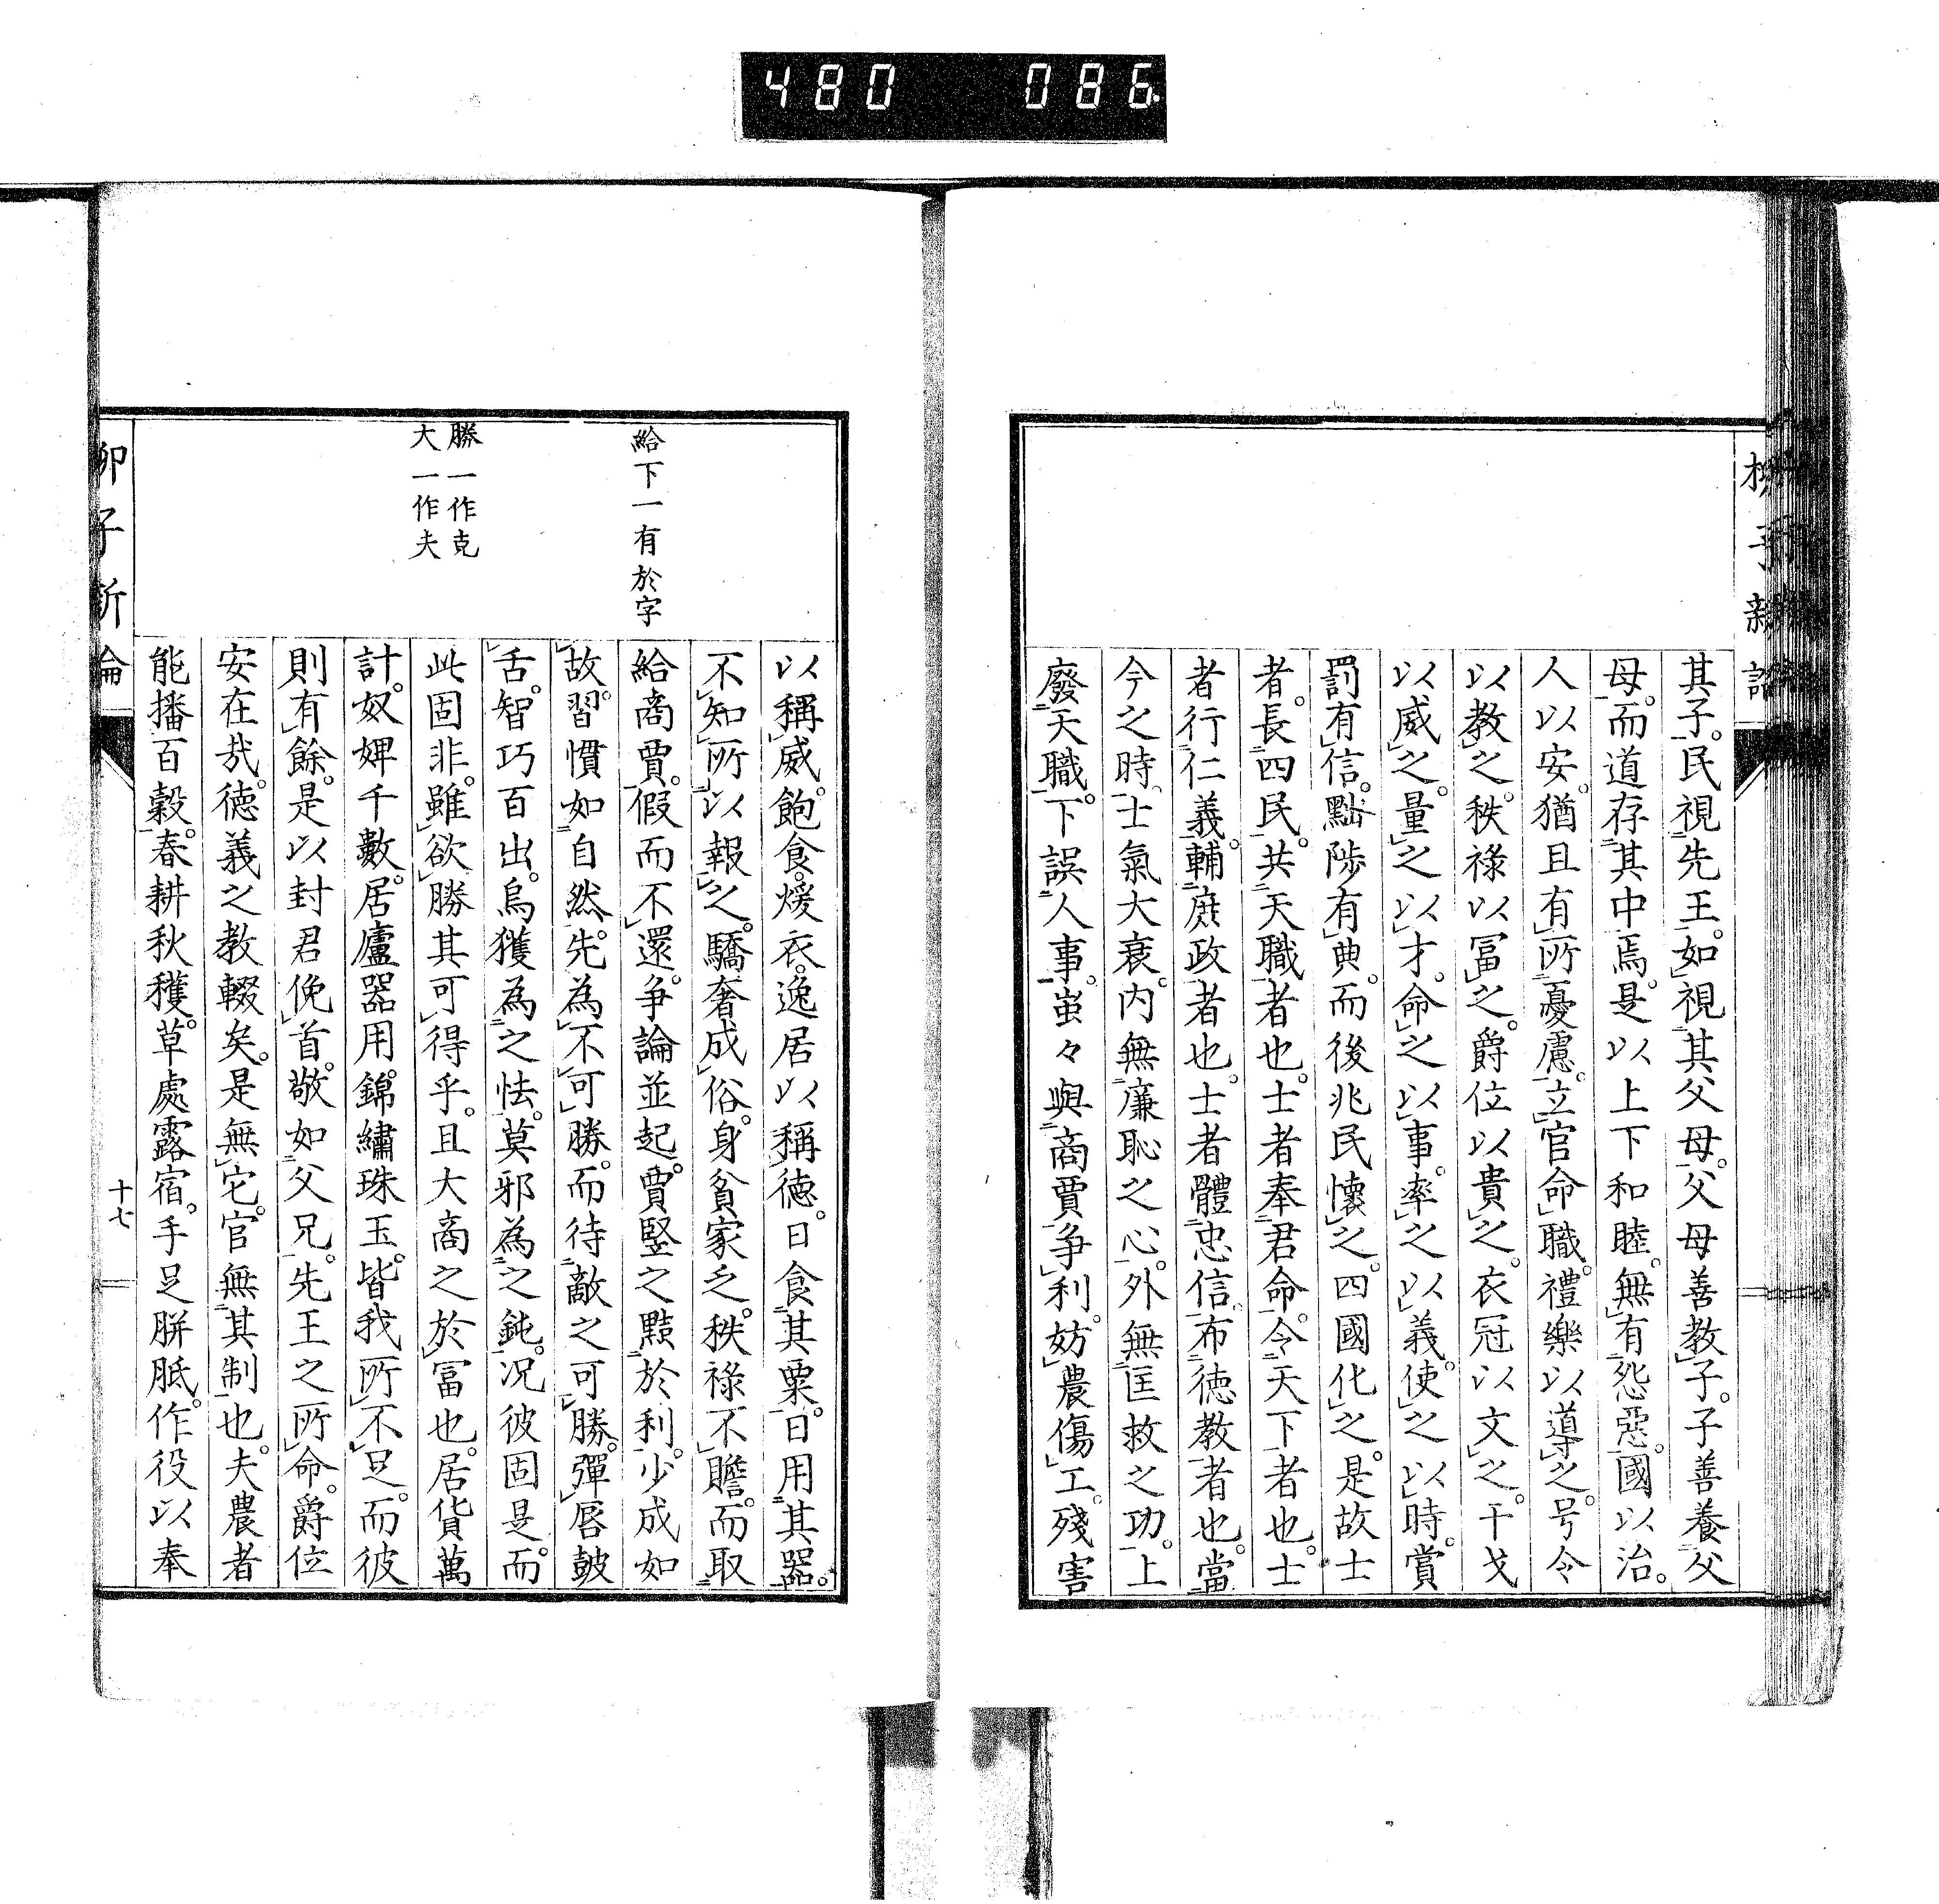 480 086
其子。民視先王。如視其父母。父母善教子。子善養父
母。而道存其中焉。是以上下和睦。無有怨惡。國以治。
人以安。猶且有所憂慮。立官命職。禮樂以導之。号令
以教之。秩祿以冨之。爵位以貴之。衣冠以文之。干戈
以威之。量之以才。命之以事。率之以義。使之以時。賞
罰有信。黜陟有典。而後兆民懷之。四國化之。是故士
者。長四民。共天職者也。士者奉君命。令天下者也。士
者行仁義。輔庶政者也。士者體忠信。布徳教者也。當
今之時。士氣大衰。内無廉恥之心。外無匡救之功。上
廢天職。下誤人事。蚩々與商賈爭利。妨農傷工。殘害
給下一有於字
勝一作克
大一作夫
以稱威。飽食。煖衣。逸居以稱徳。日食其粟。日用其器。
不知所以報之。驕奢成俗。身貧家乏。秩祿不贍。而取
給商賈。假而不還。爭論並起。賈豎之黠於利。少成如
故。習慣如自然。先為不可勝。而待敵之可勝。彈唇鼓
舌。智巧百出。烏獲為之怯。莫邪為之鈍。況彼固是。而
此固非。雖欲勝其可得乎。且大商之於冨也。居貨萬
計。奴婢千數。居廬器用。錦繡珠玉。皆我所不足。而彼
則有餘。是以封君俛首。敬如父兄。先王之所命。爵位
安在㢤。徳義之教輟矣。是無它。官無其制也。夫農者
能播百穀。春耕秋穫。草處露宿。手足胼胝。作役以奉
柳子新論
十七